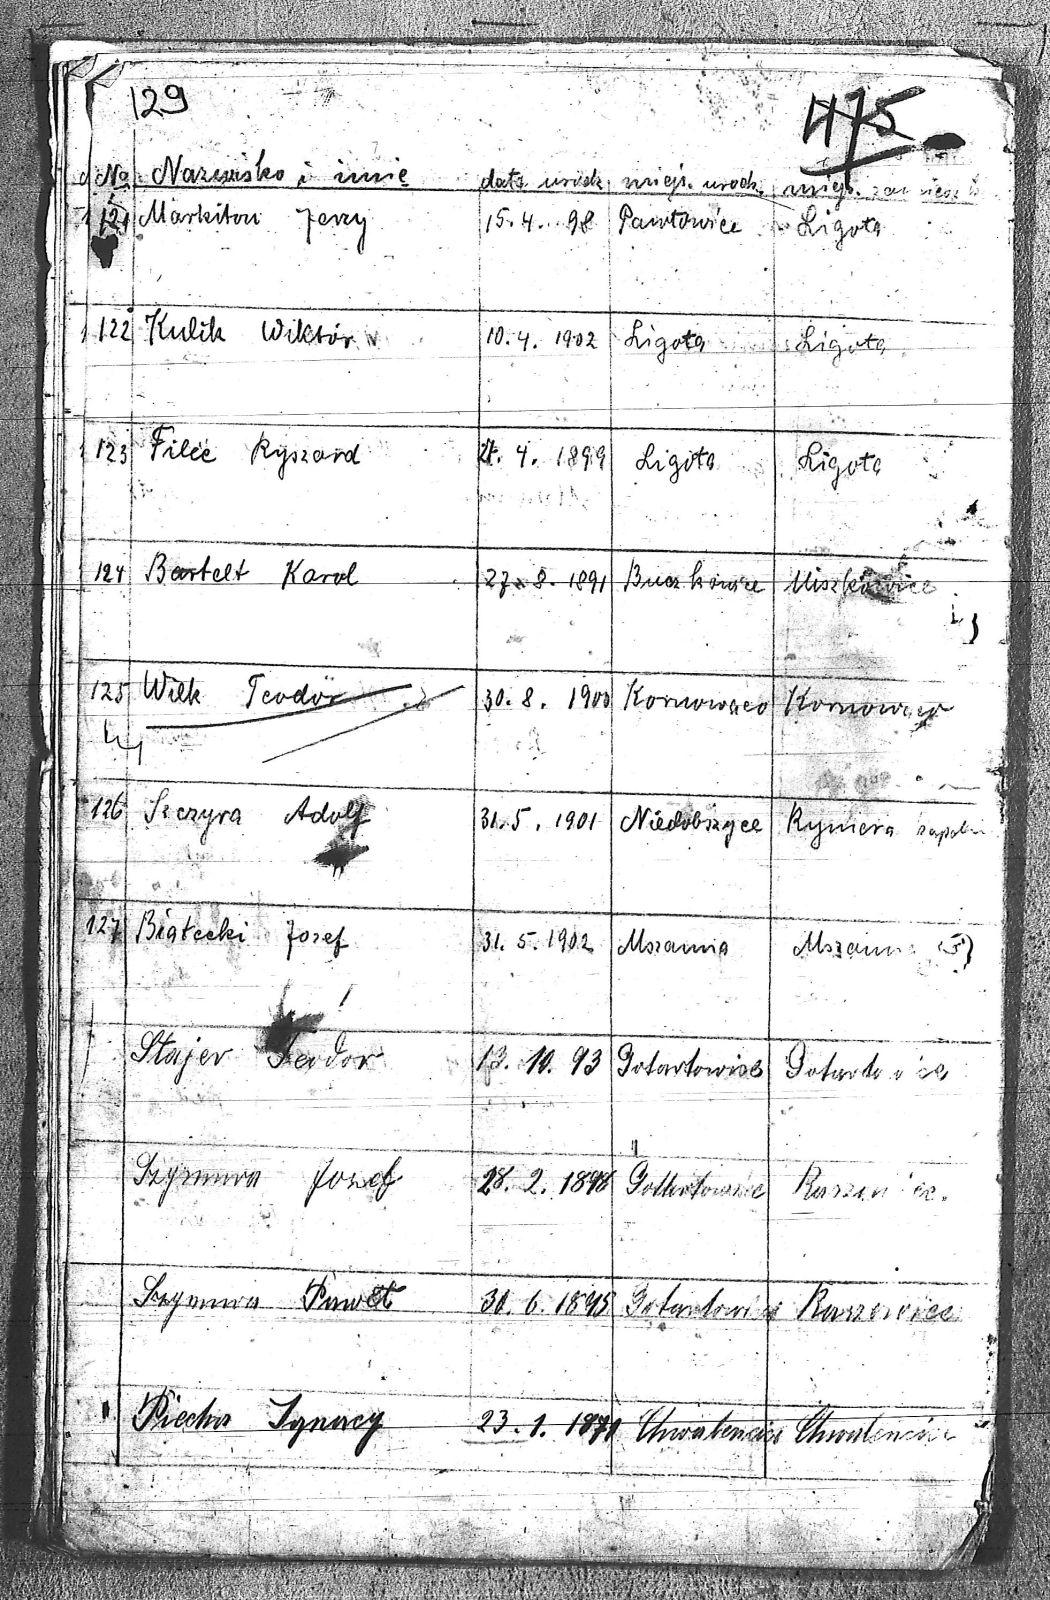 129
1175
No Nazwisko i imię data urodz. miejs. urodz. miejs. zamieszk
121 Markiton Jerzy 15.4. 98 Pawłowice Ligota
122 Kulik Wiktór 10.4. 1902 Ligota Ligota
123 Filec Ryszard 4. 1899 Ligota Ligota
124 Bartelt Karol 27. 8. 1891
125 Wilk Teodór 30. 8. 1900 Kornowaco Kornowaco
126 Szczyra Adolf 31.5. 1901 Niedobszyce Rymera
127 Białecki Jozef 31.5.1902 Mszanna Mszanna
Stajer Teodor 13. 10. 93 Gotartowice Gotartowice
Szymura Jozef 28. 2. 1898 Gottartowice
Szymura Paweł 30. 6. 1895 Gotartowice Raszowice
Piecha Ignacy 23. 1. Chwalencice Chwalencice